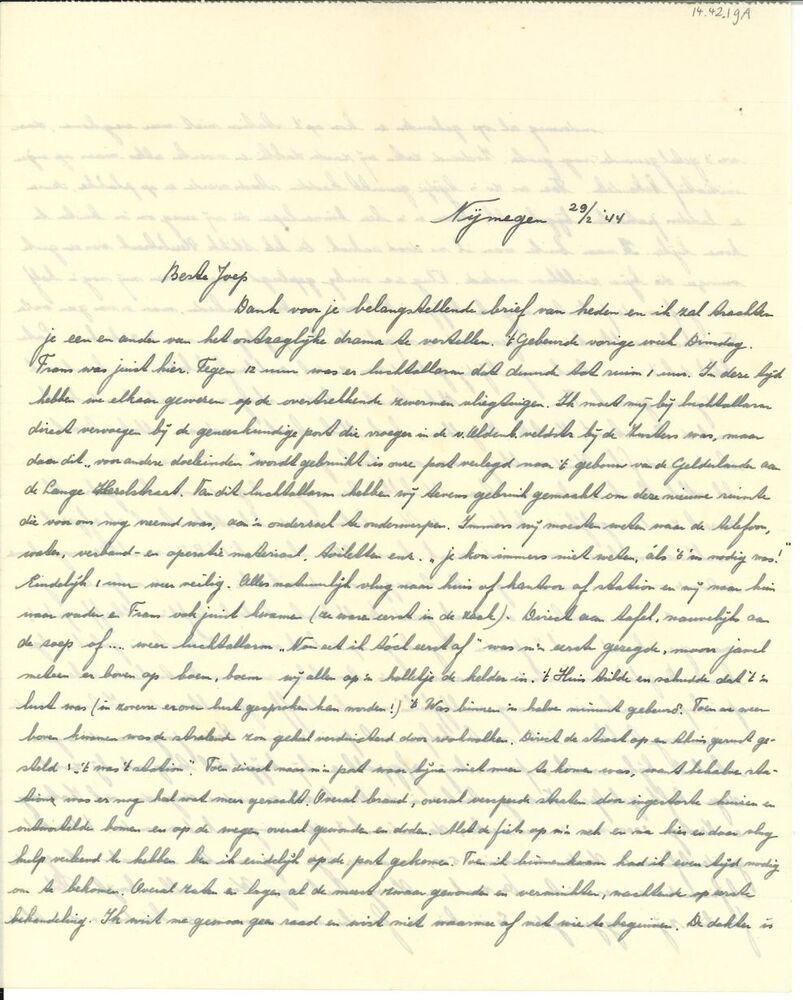 14.42.19A
Nijmegen 29/2 '44
Beste Joep
Dank voor je belangstellende brief van heden en ik zal trachten
je een en ander van het ontzaglijke drama te vertellen. 't Gebeurde vorige week Dinsdag.
Frans was juist hier. Tegen 12 uur was er luchtalarm dat duurde tot ruim 1 uur. In deze tijd
hebben we elkaar gewezen op de overtrekkende zwermen vliegtuigen. Ik moet mij bij luchtalarm
direct vervoegen bij de geneeskundige post die vroeger in de v. Oldenb. veldstr bij de Zusters was, maar
daar dit "voor andere doeleinden" wordt gebruikt is onze post verlegd naar 't gebouw van de Gelderlander aan
de Lange Hezelstraat. Van dit luchtalarm hebben wij tevens gebruik gemaakt om deze nieuwe ruimte
die voor ons nog vreemd was, aan 'n onderzoek te onderwerpen. Immers wij moesten weten waar de telefoon,
water, verband- en operatie materiaal, toiletten enz. "je kon immers niet weten, als 't 'ns nodig was!"
Eindelijk 1 uur weer veilig. Alles natuurlijk vlug naar huis of kantoor of station en wij naar huis
waar vader en Frans ook juist kwamen (ze waren eerst in de zaak). Direct aan tafel, nauwelijks aan
de soep of.... weer luchtalarm "Nou eet ik tóch eerst af" was m'n eerste gezegde, maar jawel
meteen er boven op boem, boem wij allen op 'n holletje de kelder in. 't Huis trilde en schudde dat 't 'n
lust was (in zoverre er over lust gesproken kan worden!) 't Was binnen 'n halve minuut gebeurd. Toen we weer
boven kwamen was de stralende zon geheel verduisterd door rookwolken. Direct de straat op en thuis gerust ge-
steld: "'t was 't station". Toen direct naar m'n post waar bijna niet meer te komen was, want behalve sta-
tion was er nog heel wat meer geraakt. Overal brand, overal versperde straten door ingestorte huizen en
ontwortelde bomen en op de wegen overal gewonden en doden. Met de fiets op m'n nek en na hier en daar vlug
hulp verleend te hebben ben ik eindelijk op de post gekomen. Toen ik binnenkwam had ik even tijd nodig
om te bekomen. Overal zaten en lagen al de meest zwaar gewonden en verminkten, wachtende op eerste
behandeling. Ik wist me gewoon geen raad en wist niet waarmee of met wie te beginnen. De dokter is